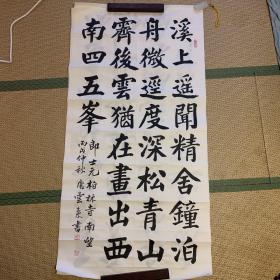 溪上遥聞精舍鐘泊
舟微逕度深松青山
霽後雲猶在畫出西
南四五峯
郎士元柏林寺南望
丙戌仲秋 雲東書